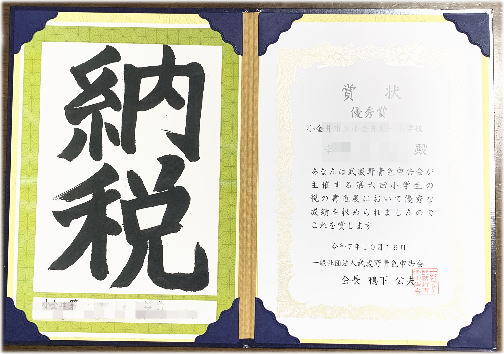 納税
賞状
優秀賞
小金井市立小金井 小学校
殿
あなたは武蔵野青色申告会が
主催する第六回小学生の
税の書道展において優秀な
成績を収められましたので
これを賞します
令和7年10月18日
一般社団法人武蔵野青色申告会
会長 鴨下 公夫